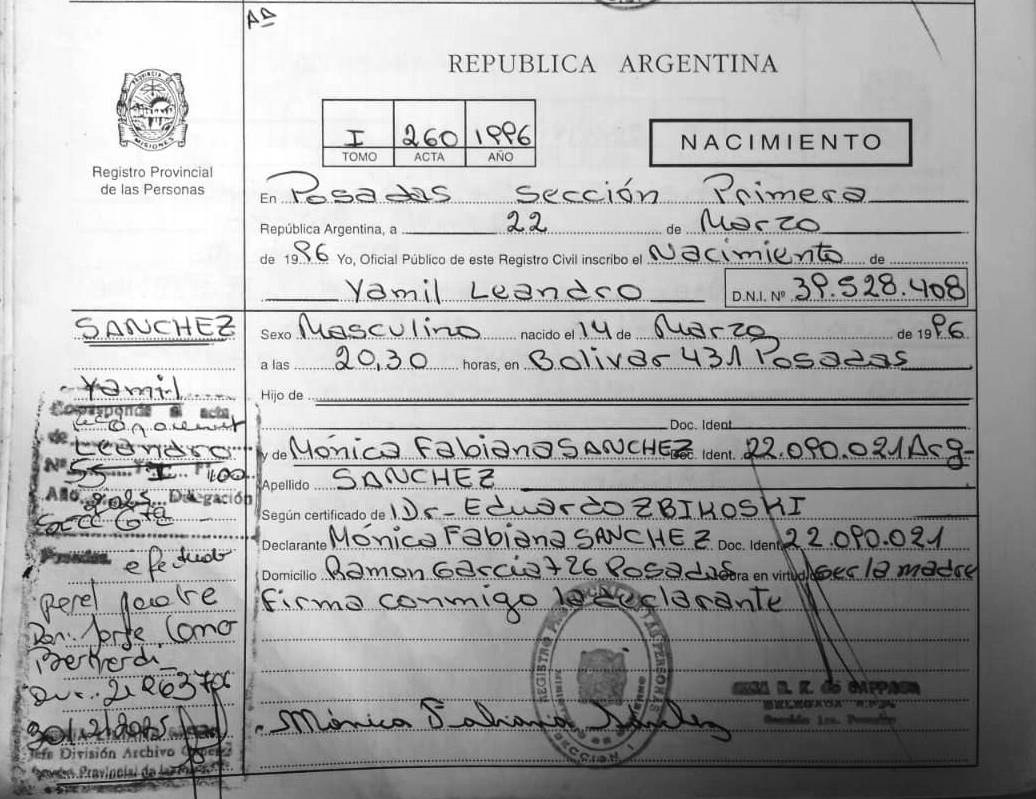 REPUBLICA ARGENTINA
I 260 1996
TOMO ACTA AÑO
NACIMIENTO
PROVINCIA DE MISIONES
Registro Provincial
de las Personas
En Posadas Sección Primera
República Argentina, a 22 de Marzo
de 1996 Yo, Oficial Público de este Registro Civil inscribo el Nacimiento de
Yamil Leandro D.N.I. Nº 39.528.408
SANCHEZ
Yamil
Leandro
Sexo Masculino nacido el 14 de Marzo de 1996
a las 20,30 horas, en Bolivar 431 Posadas
Hijo de
Doc. Ident.
y de Mónica Fabiana SANCHEZ Doc. Ident. 22.090.021 Arg-
Apellido SANCHEZ
Según certificado de Dr- Eduardo ZBIKOSKI
Declarante Mónica Fabiana SANCHEZ Doc. Ident 22.090.021
Domicilio Ramon Garcia 726 Posadas obra en virtud ser la madre
firma conmigo la declarante
Corresponde al acta
de
Nº 55 I
Año 2025 Delegación
Posadas efectuado
por el padre
Jorge
Mónica Fabiana Sánchez
Jefe División Archivo
Provincial de las
SECCION 1